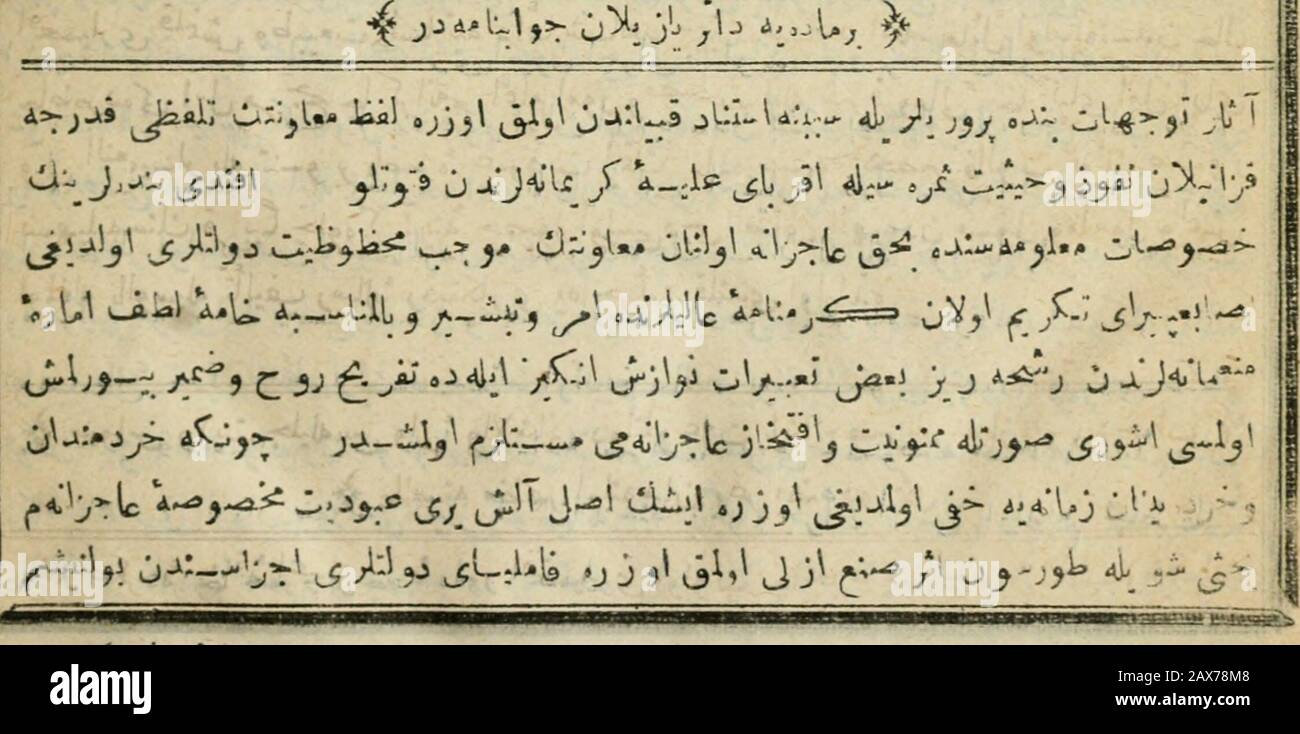 برماده‌یه دائر یازیلان جوابنامه‌در
آثار توجهات بنده پرور یلریله سببنه استناد قبیلندن اولمق اوزره لفظ معاونتك تلفظی قدرجه
قزانیلان نفوذ وحیثیت ثمره سیله اقربای علیهٔ کریمانه‌لرندن فتوتلو افندی بنده‌لرینك
خصوصات معلومه‌سنده بحق عاجزانه اولنان معاونتك موجب محظوظیت دولتلری اولدیغی
تکریم اولان کرمنامهٔ عالیلرنده امر وتبشیر وبالمناسبه خامهٔ لطف امارهٔ
منعمانه‌لرندن رشحه ریز بعض تعبیرات نوازش انکیز ایله ده تفریح روح وضمیر بیورلمش
اولمسی اشوری صورتله ممنونیت وافتخار عاجزانه‌می مستلزم اولمشدر چونکه خردمندان
زمانه‌یه خفی اولمدیغی اوزره ایشك اصل آلش یری عبودیت مخصوصهٔ عاجزانه‌م
شویله طورسون اثر صنع ازلی اولمق اوزره فامیلیای دولتلری اجزاسندن بولنیشم
alamy
Image ID: 2AX78M8
www.alamy.com